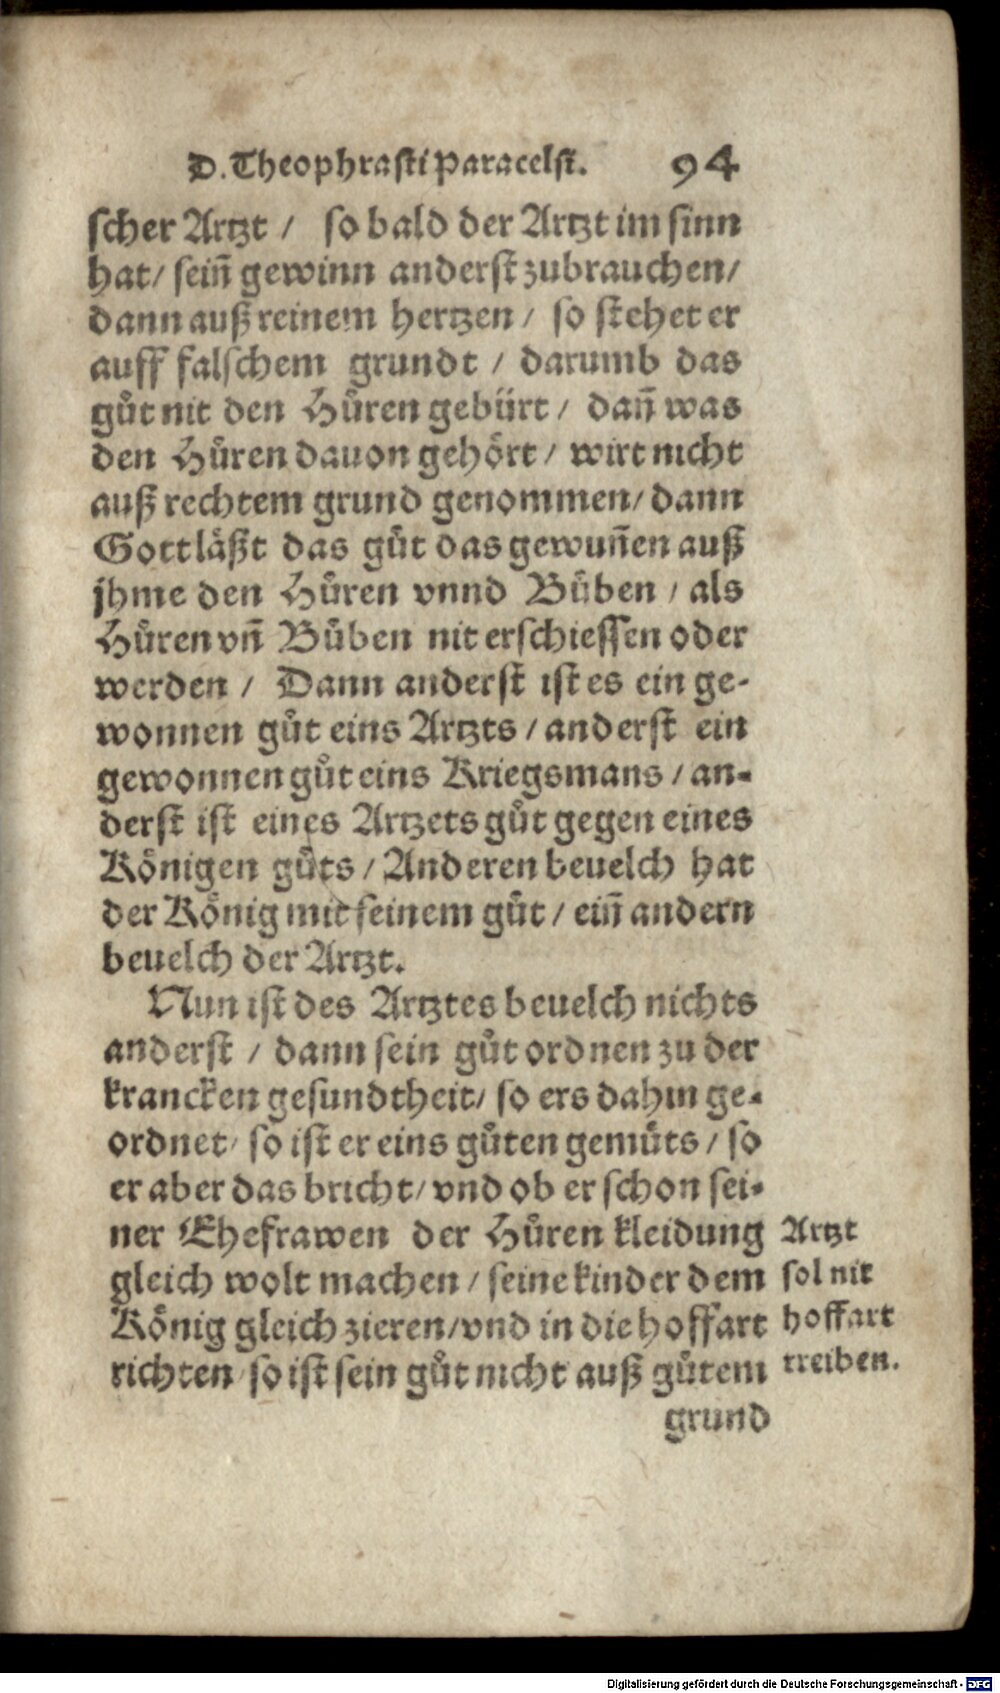 D. Theophrasti Paracelsi. 94
scher Artzt / so bald der Artzt im sinn
hat / sein̄ gewinn anderst zubrauchen /
dann auß reinem hertzen / so stehet er
auff falschem grundt / darumb das
gůt nit den Hůren gebürt / dan̄ was
den Hůren dauon gehört / wirt nicht
auß rechtem grund genommen / dann
Gott läßt das gůt das gewun̄en auß
jhme den Hůren vnnd Bůben / als
Hůren vn̄ Bůben nit erschiessen oder
werden / Dann anderst ist es ein ge-
wonnen gůt eins Artzts / anderst ein
gewonnen gůt eins Kriegsmans / an-
derst ist eines Artzets gůt gegen eines
Königen gůts / Anderen beuelch hat
der König mit seinem gůt / ein̄ andern
beuelch der Artzt.
Nun ist des Artztes beuelch nichts
anderst / dann sein gůt ordnen zu der
krancken gesundtheit / so ers dahin ge-
ordnet / so ist er eins gůten gemůts / so
er aber das bricht / vnd ob er schon sei-
ner Ehefrawen der Hůren kleidung
gleich wolt machen / seine kinder dem
König gleich zieren / vnd in die hoffart
richten / so ist sein gůt nicht auß gůtem
grund
Artzt
sol nit
hoffart
treiben.
Digitalisierung gefördert durch die Deutsche Forschungsgemeinschaft - DFG